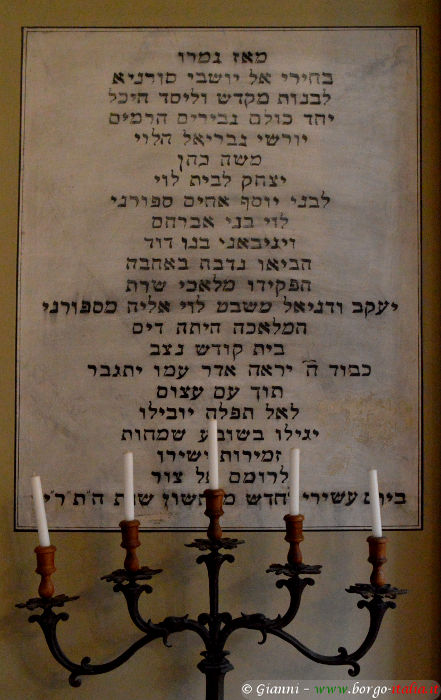 מאז גמרו
בחירי אל יושבי סורניא
לבנות מקדש וליסד היכל
יחד כולם גבירים הרמים
יורשי גבריאל הלוי
משה כהן
יצחק לבית לוי
לבני יוסף אחים ספורני
לוי בני אברהם
ויגיבאני בנו דוד
הביאו נדבה באהבה
הפקידו מלאכי שרת
יעקב ודניאל משבט לוי אליה מספורני
המלאכה היתה דיס
בית קודש נצב
כבוד ה' יראה אדר עמו יתגבר
תוך עם עצום
לאל תפלה יובילו
יגילו בשובע שמחות
זמירות ישירו
לרומם אל צור
ביום עשירי לחדש מרחשון שנת
© Gianni - www.borgo-italia.it